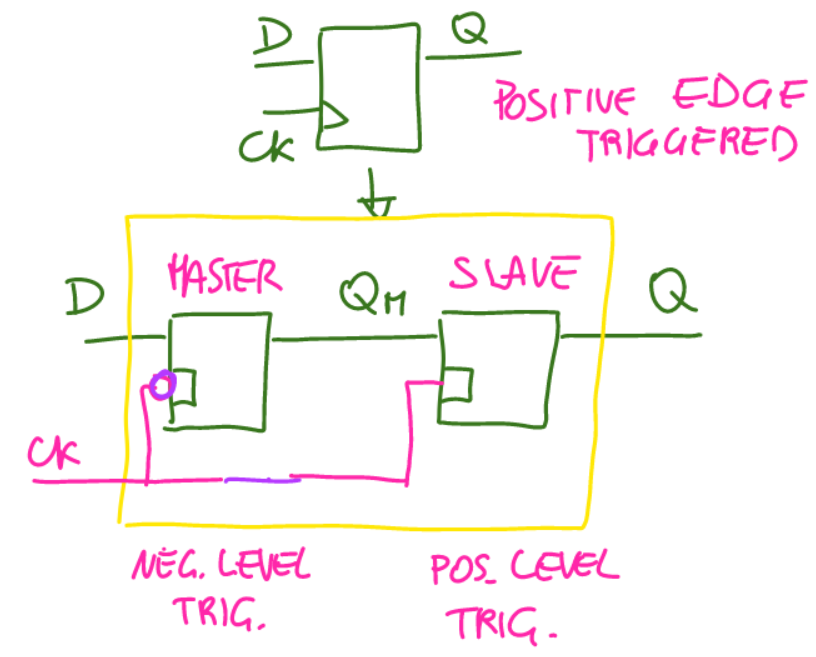 D
Q
CK
POSITIVE EDGE
TRIGGERED
MASTER
SLAVE
D
QM
Q
CK
NEG. LEVEL
TRIG.
POS. LEVEL
TRIG.